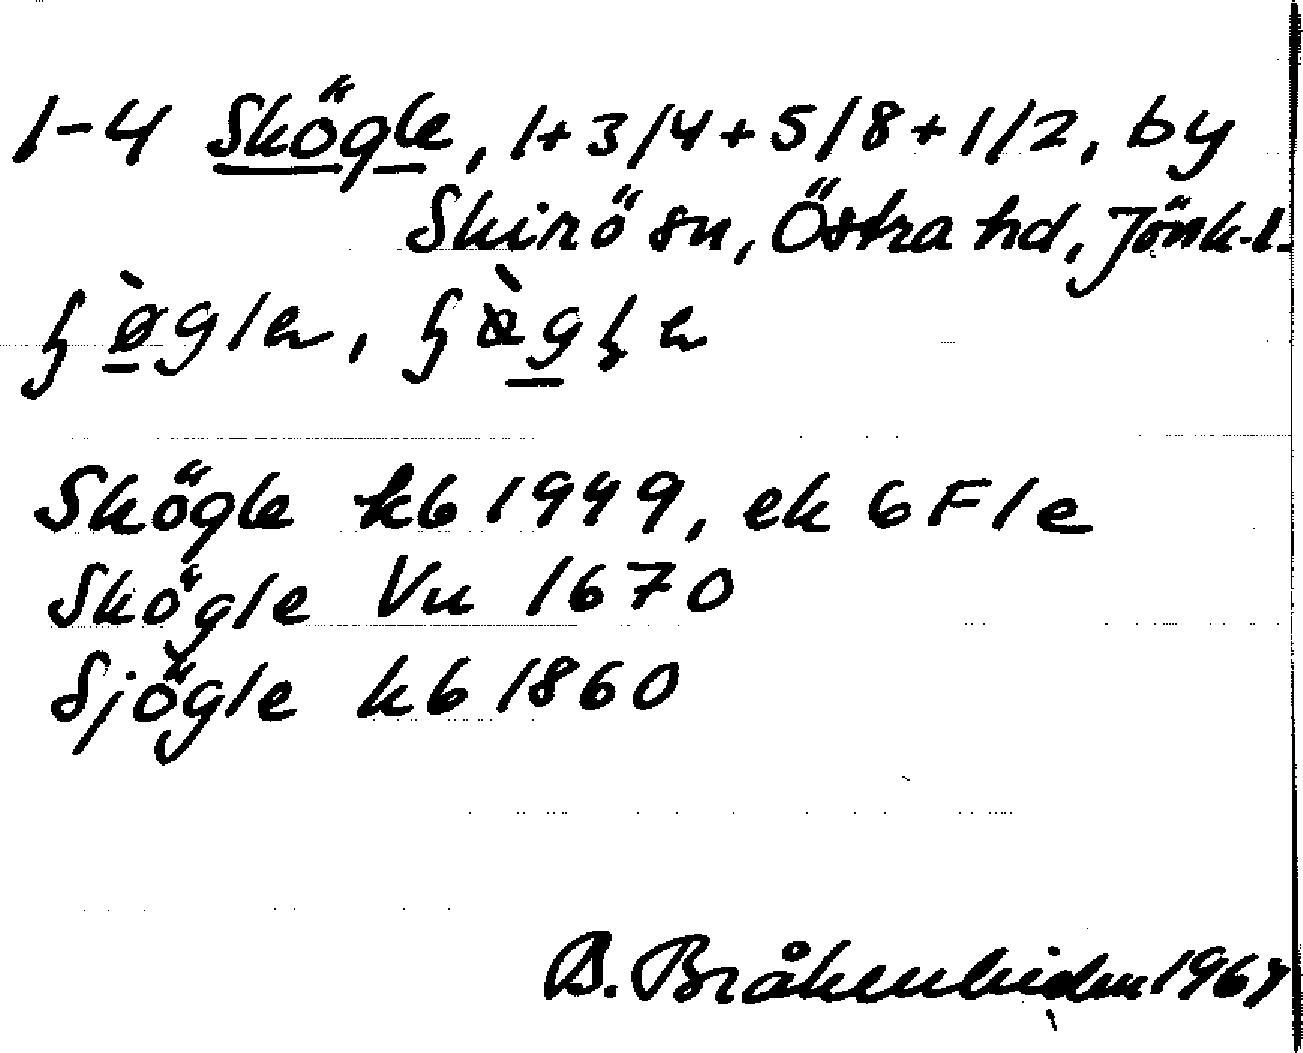 1-4 Skögle, 1+3/4+5/8+1/2, by
Skirö sn, Östra hd, Jönk-l.
Skögle kb 1949, ek 6F1e
Skögle Vu 1670
Sjögle kb 1860
B.